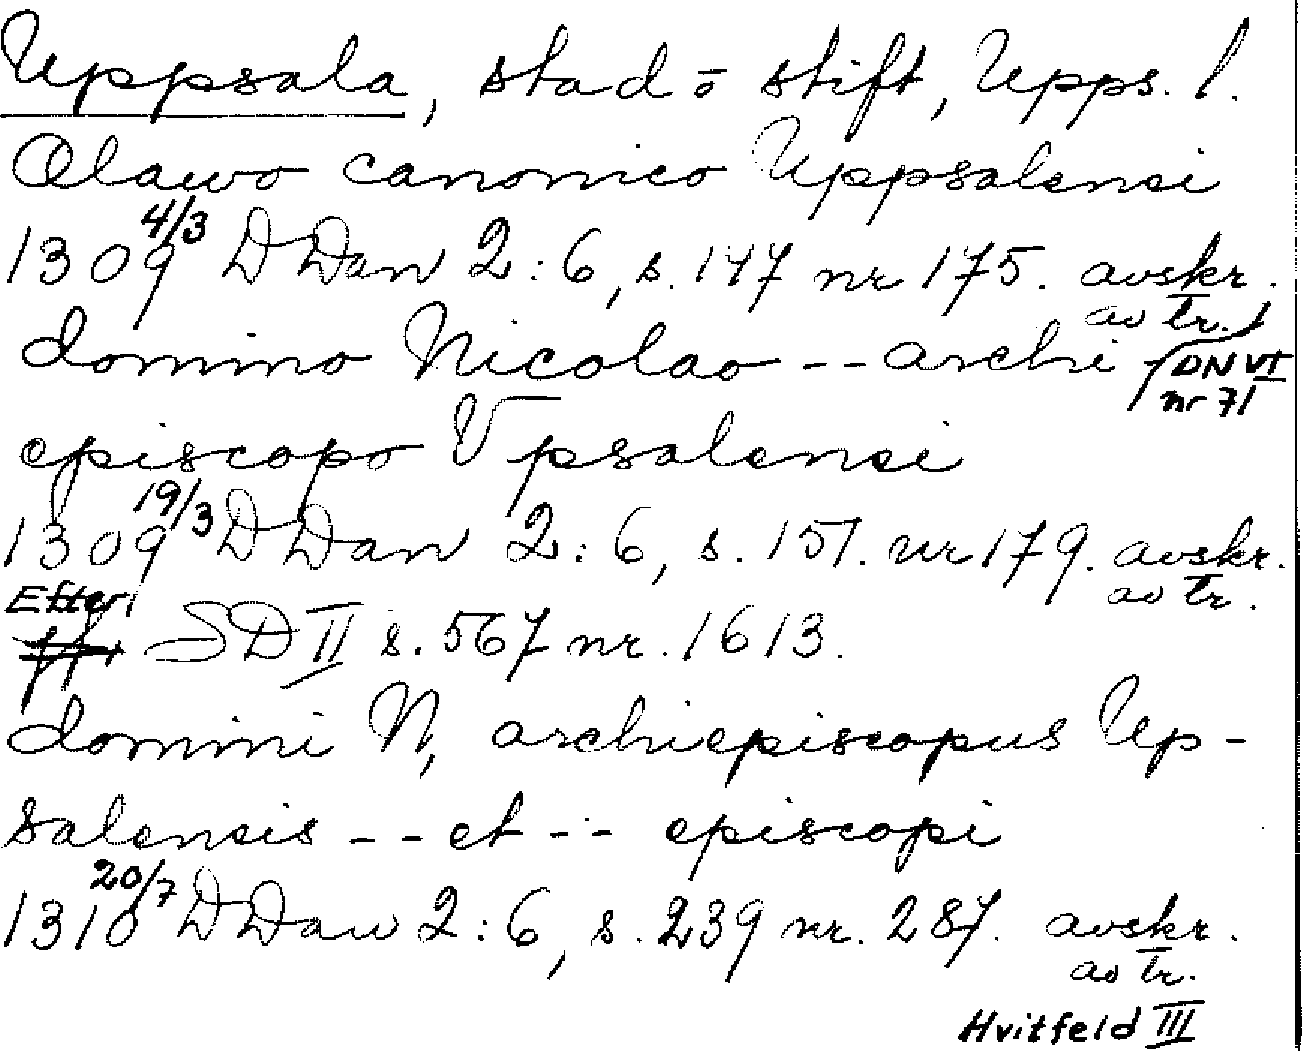 Uppsala, stad ō stift, Upps. l.
Olawo canonico Uppsalensi
1309 4/3 DDan 2:6, s. 147 nr 175. avskr.
av tr.
domino Nicolao -- archi (DN VI
nr 71)
episcopo Vpsalensi
1309 19/3 DDan 2:6, s. 151. nr 179. avskr.
av tr.
Efter
SD II s. 567 nr. 1613.
domini N, archiepiscopus Up-
salensis -- et -- episcopi
1310 20/7 DDan 2:6, s. 239 nr. 287. avskr.
av tr.
Hvitfeld III